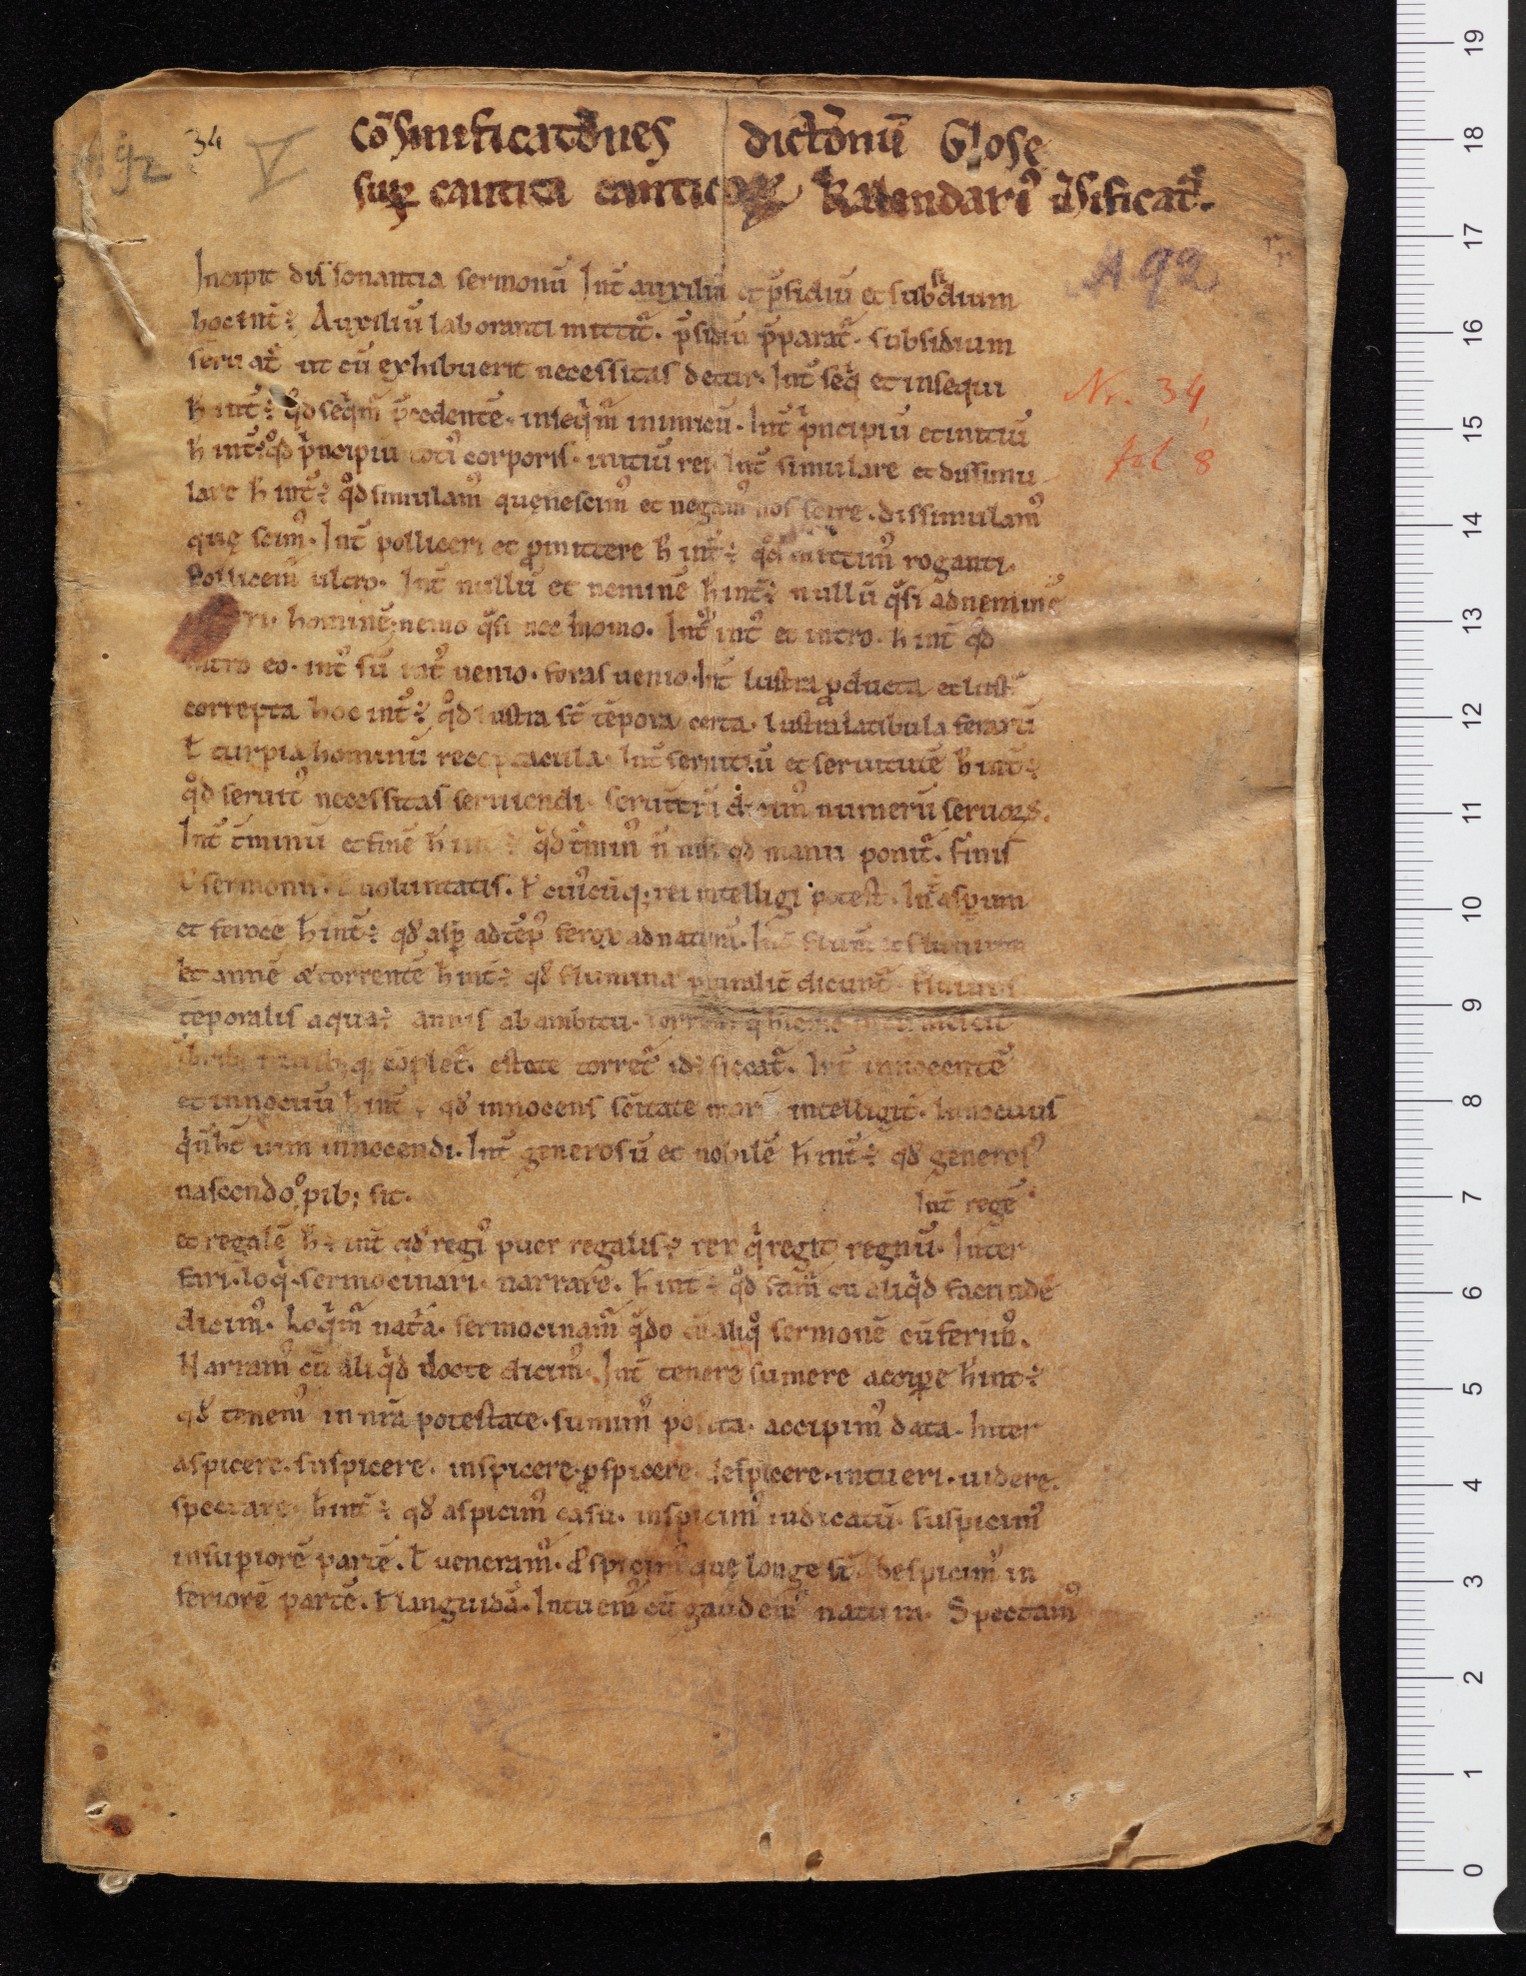 A 92 34 V
Cōsignificatōnes dictōnū Glose
suꝑ cantica canticoꝝ Kalendariꝰ v̄sificatꝰ.
A 92
Incipit dissonantia sermonū Int̄ auxiliū et p̄sidiū et subsidium
hoc int̄÷ Auxiliū laboranti mittit᷑. p̄sidiū p̄parat᷑. subsidium
seruat᷑ ut cū exhibuerit necessitas detur. Int̄ seq̄ et insequi
Nr. 34,
h̄ int̄÷ qd̄ seqͥm᷑ p̄cedentē. inseqͥm᷑ inimicū. Int̄ pͥncipiū et initiū
fol 8
h̄ int̄÷ qd̄ pͥncipiū totiꝰ corporis. initiū rei. Int̄ simulare et dissimu
lare h̄ int̄÷ qd̄ simulamꝰ quę nescimꝰ et negamꝰ nos scire. dissimulamꝰ
quę scimꝰ. Int̄ polliceri et ꝓmittere h̄ int̄÷ qd̄ mittimꝰ roganti.
Pollicem᷑ ultro. Int̄ nullū et neminē h̄ int̄÷ nullū qͣsi ad neminē
hominē; nemo qͣsi nec homo. Int̄ intꝰ et intro. h̄ int̄ qd̄
intro eo. intꝰ sū intꝰ uenio. foras uenio. Int̄ lustra ꝓducta et lustͣ
correpta hoc int̄÷ qd̄ lustra st̄ tēpora certa. lustra latibula ferarū
ł turpia hominū receptacula. Int̄ seruitiū et seruitutē h̄ int̄÷
qd̄ seruitꝰ necessitas seruiendi. seruitiū dicimꝰ numerū seruoꝝ.
Int̄ t̄minū et finē h̄ int̄÷ qd̄ t̄minꝰ n̄ nisi qd̄ manu ponit᷑. finis
ł sermonis. ł uoluntatis. ł cuiꝰcūq; rei intelligi potest. Int̄ asꝑum
et feroce h̄ int̄÷ qd̄ asꝑ ad tēpꝰ ferox ad naturā. Int̄
et annē & torrentē h̄ int̄÷ qd̄ flumina pluralit̄ dicunt᷑. fluuius
tēporalis aqua÷ annis ab ambitu.
cōplet᷑. estate torret᷑ id÷ siccat᷑. Int̄ innocentē
et innocuū h̄ int̄÷ qd̄ innocens sc̄itate mor intelligit᷑. Innocuus
qͥ n̄ hꝫ uim innocendi. Int̄ generosū et nobilē h̄ int̄÷ qd̄ generosꝰ
nascendo opib; sit. Int̄ regē
et regalē h̄÷ int̄ qd̄ regiꝰ puer regalis÷ rex qͥ regit regnū. Inter
fari. loqͥ. sermocinari. narrare. h̄ int̄÷ qd̄ fam᷑ cū aliqͥd facunde
dicimꝰ. Loqͥm᷑ natͣa. sermocinam᷑ qͣdo cū aliqͦ sermonē cūferimꝰ.
Narramꝰ cū aliqͥd docte dicimꝰ. Int̄ tenere sumere accipe h̄ int̄÷
qd̄ tenemꝰ in nr̄a potestate. sumimꝰ posita. accipimꝰ data. Inter
aspicere. suspicere. inspicere. ꝓspicere. despicere. intueri. uidere.
spectare. h̄ int̄÷ qd̄ aspicimꝰ casu. inspicimꝰ iudicatū. suspicimꝰ
in suꝑiorē partē. ł ueneramꝰ. ꝓspicimꝰ quę longe st̄. despicimꝰ in
feriorē partē. ł languidā. Intuem᷑ cū gaudemꝰ natum. Spectamꝰ